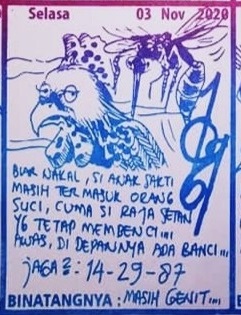 Selasa 03 Nov 2020
BIAR NAKAL, SI ANAK SAKTI
MASIH TERMASUK ORANG
SUCI, CUMA SI RAJA SETAN
YG TETAP MEMBENCI...
AWAS, DI DEPANNYA ADA BANCI...
JAGA²: 14-29-87
BINATANGNYA: MASIH GENIT...